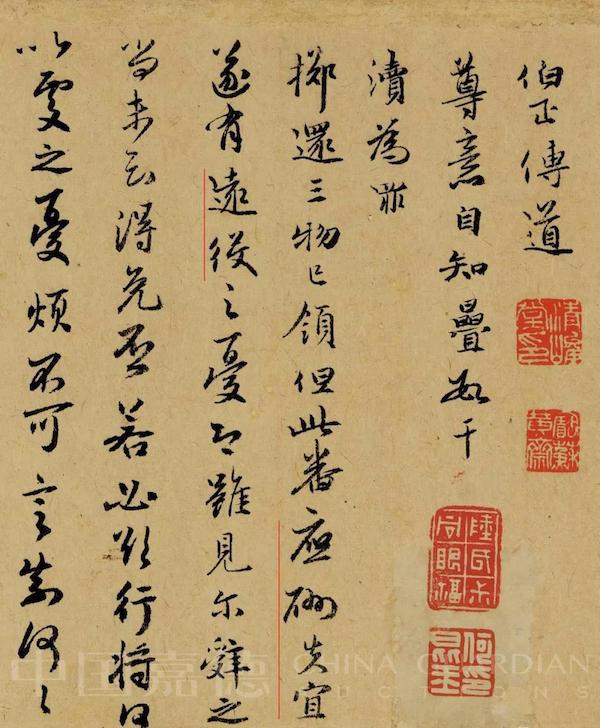 伯正傳道
尊意自知疊干
瀆為罪
擲還三物已領但此番應酬失宜
遂有遠役之憂雖見尔辭之
尚未知得免否若必欲行將何
以處之憂煩不可言柰何々
中国嘉德 CHINA GUARDIAN
AUCTIONS